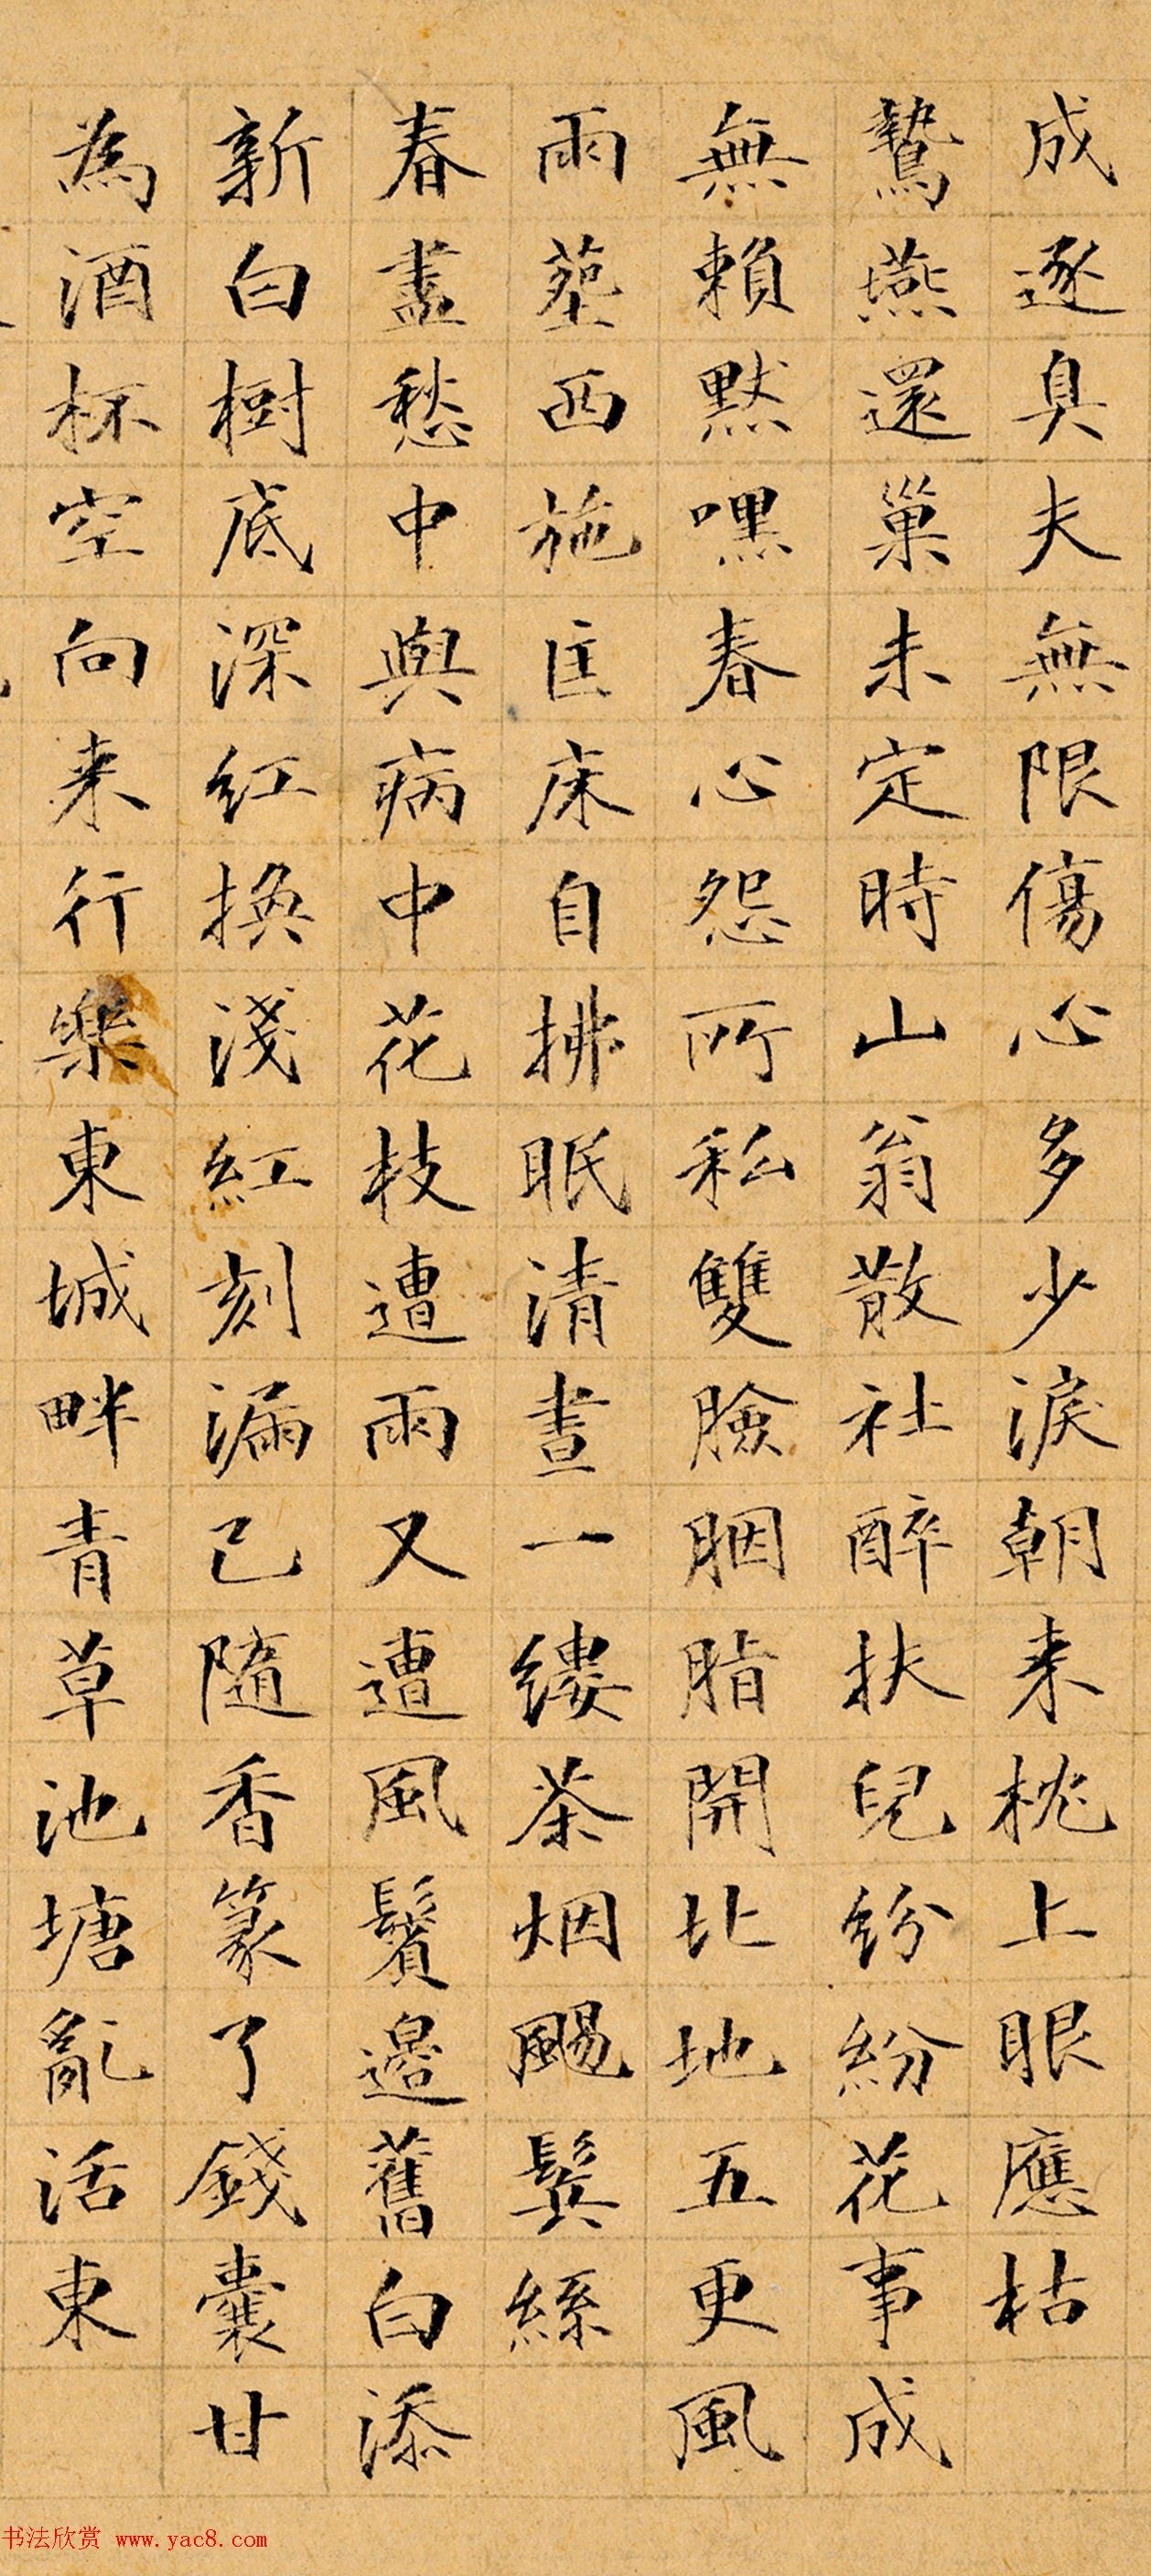 成逐臭夫無限傷心多少淚朝来枕上眼應枯
鶯燕還巢未定時山翁散社醉扶兒紛紛花事成
無賴默嘿春心怨所私雙臉胭脂開北地五更風
雨葬西施匡床自拂眠清晝一縷茶烟颺鬂絲
春盡愁中與病中花枝遭雨又遭風鬢邊舊白添
新白樹底深紅換淺紅刻漏已隨香篆了錢囊甘
為酒杯空向来行樂東城畔青草池塘亂活東
书法欣赏 www.yac8.com